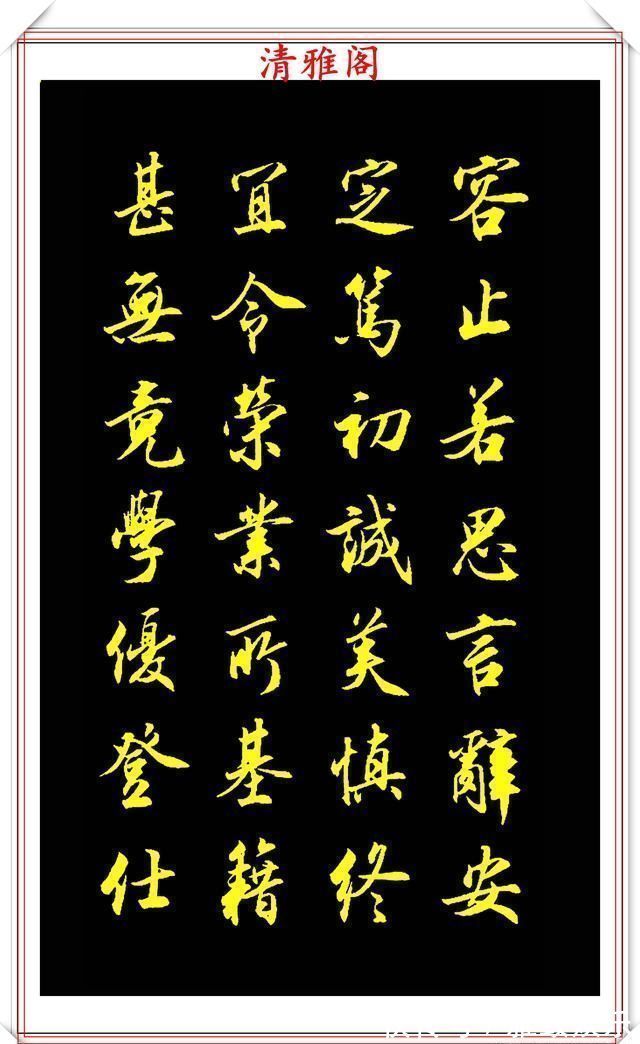 清雅阁
容止若思言辭安
定篤初誠美慎終
宜令荣業所基籍
甚無竟學優登仕